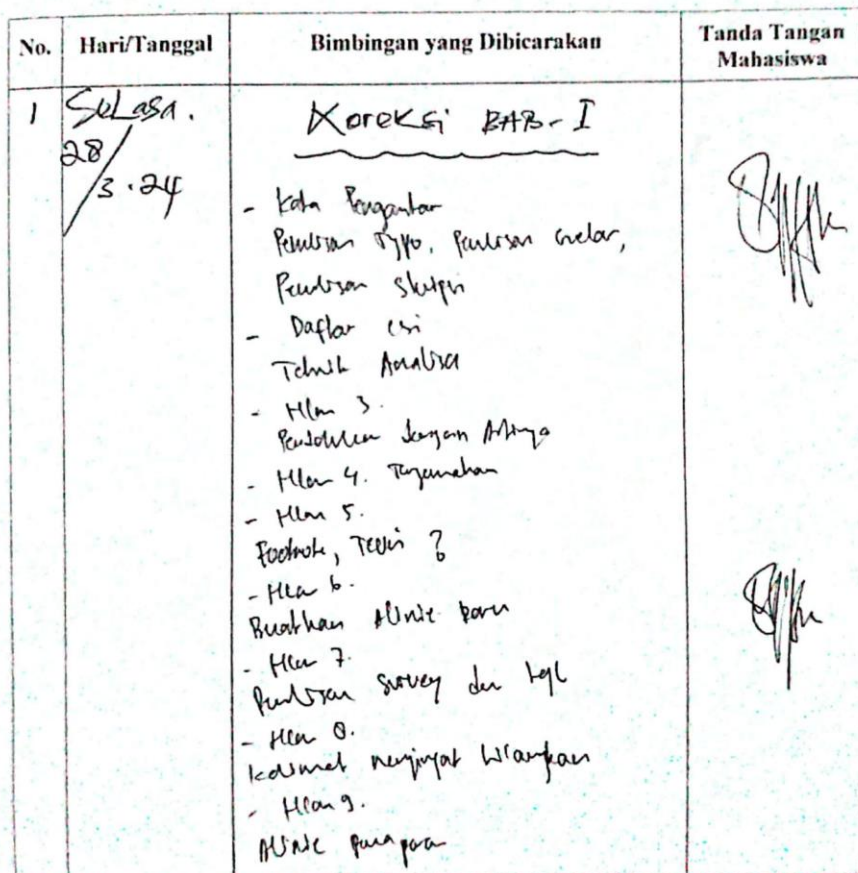 No. Hari/Tanggal Bimbingan yang Dibicarakan Tanda Tangan Mahasiswa
1 Selasa. Koreksi BAB-I
28/3.24
- Kata Pengantar
Penulisan Typo, Penulisan Gelar,
Penulisan Skripsi
- Daftar isi
Teknik Analisa
- Hlm 3.
dengan Artinya
- Hlm 4. Terjemahan
- Hlm 5.
Footnote, Teori ?
- Hlm 6.
Buatkan Alinie baru
- Hlm 7.
Penulisan survey dan tgl
- Hlm 8.
Kalimat hilangkan
- Hlm 9.
Alinie